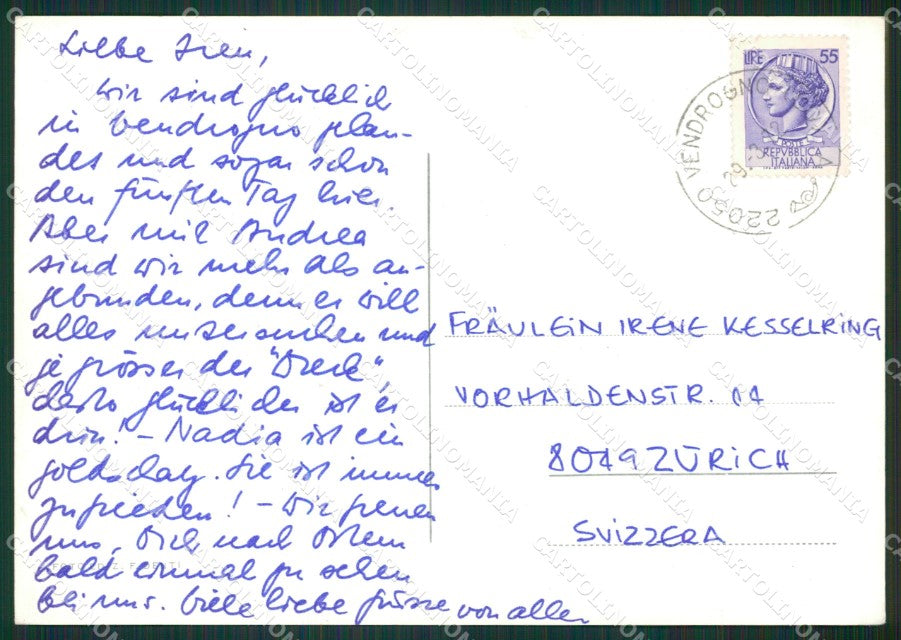 Liebe Iren,
wir sind glücklich
in Vendrogno gelan-
det und sogar schon
den fünften Tag hier.
Aber mit Andrea
sind wir mehr als an-
gebunden, denn er will
alles untersuchen und
je grösser der "Dreck",
desto glücklicher ist er
drin! - Nadia ist ein
Goldschatz. Sie ist immer
zufrieden! - Wir freuen
uns, Dich nach Ostern
bald einmal zu sehen
bei uns. Viele liebe Grüsse von allen
LIRE 55
POSTE
REPVBBLICA
ITALIANA
22050 VENDROGNO
29.
FRÄULEIN IRENE KESSELRING
VORHALDENSTR. 14
8049 ZÜRICH
SVIZZERA
CARTOLINOMANIA